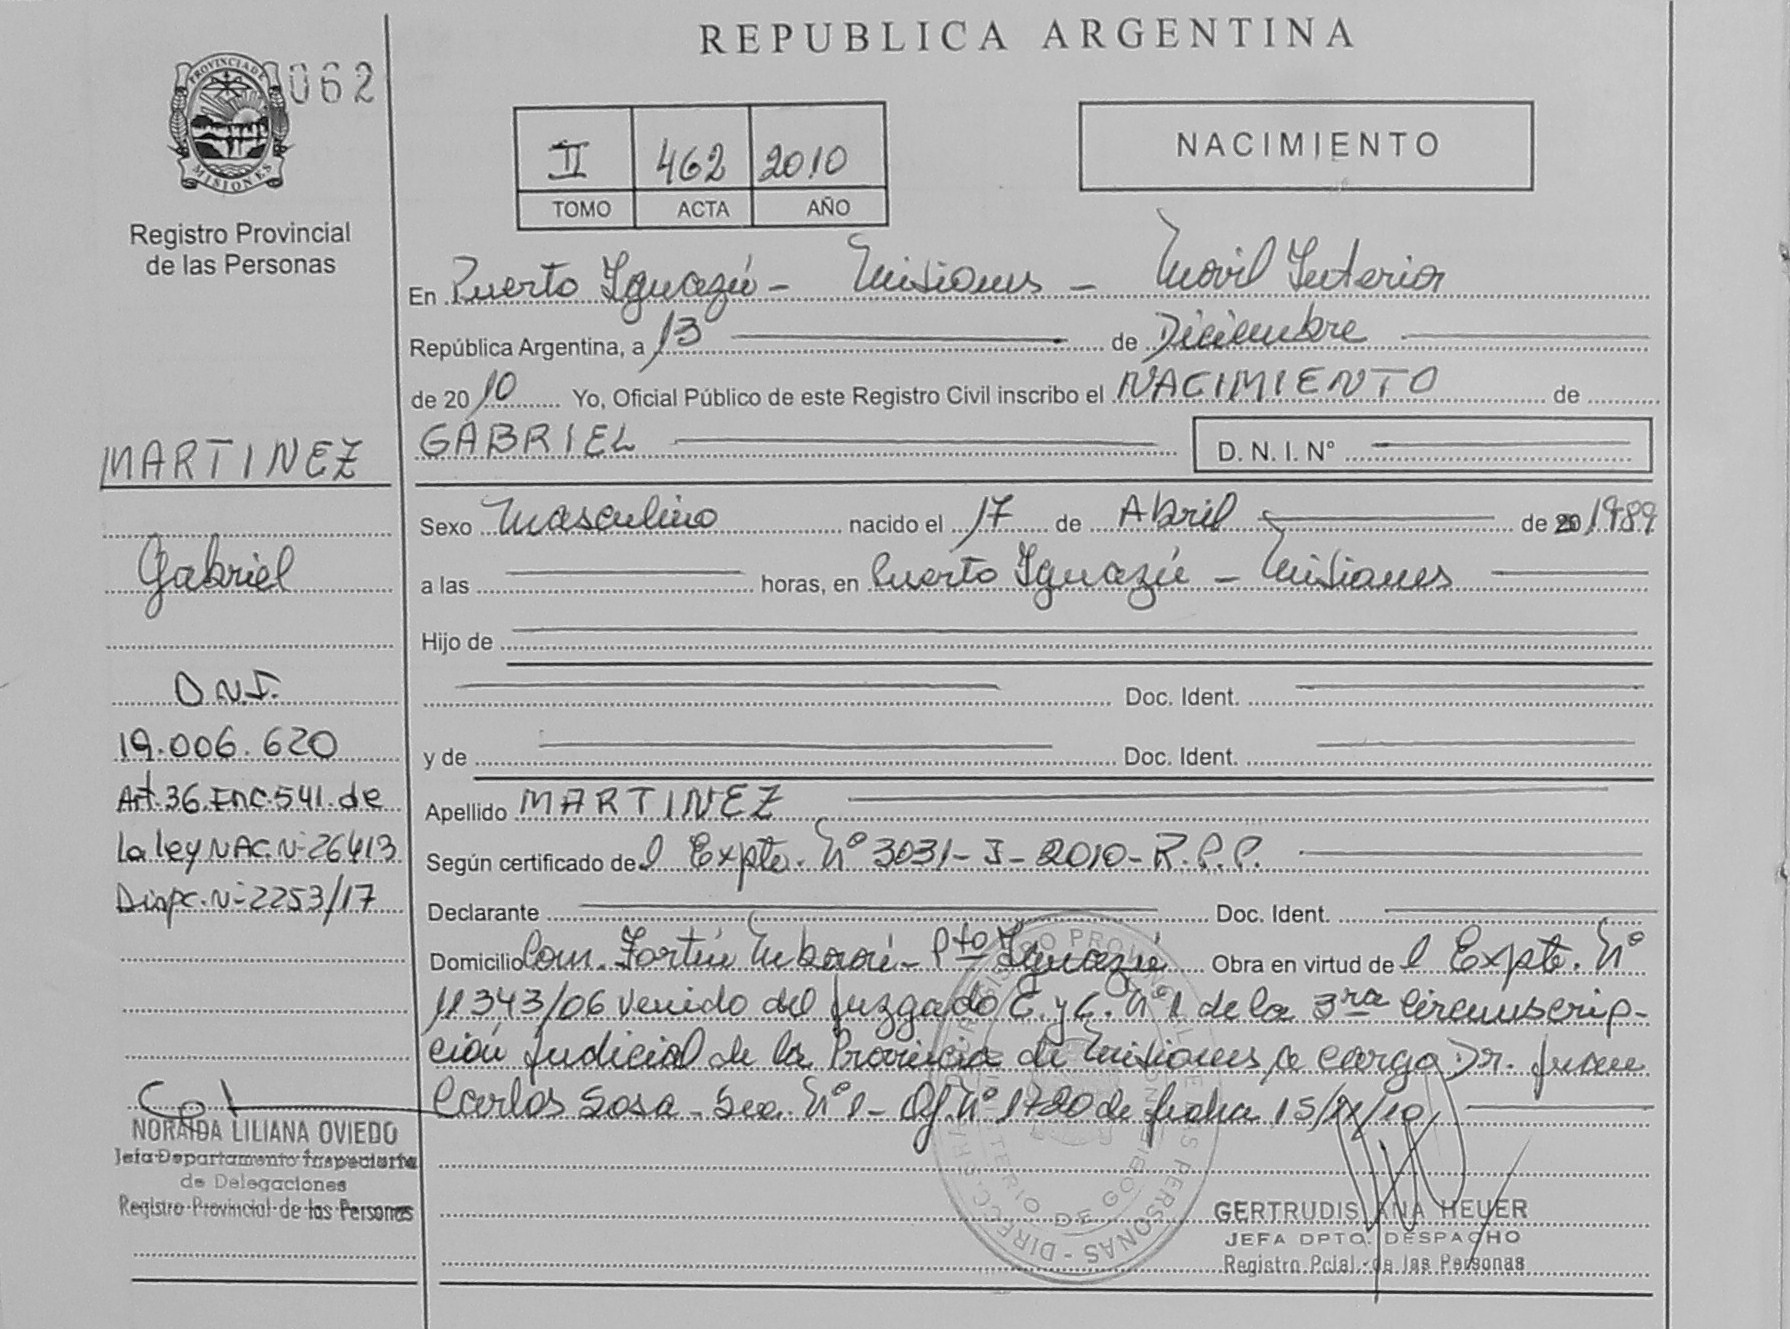 REPUBLICA ARGENTINA
PROVINCIA DE MISIONES
062
Registro Provincial
de las Personas
II 462 2010
TOMO ACTA AÑO
NACIMIENTO
En Puerto Iguazú - Misiones - Movil Interior
República Argentina, a 13 de Diciembre
de 2010 Yo, Oficial Público de este Registro Civil inscribo el NACIMIENTO de
GABRIEL D. N. I. Nº
Sexo Masculino nacido el 17 de Abril de 20 1989
a las horas, en Puerto Iguazú - Misiones
Hijo de
Doc. Ident.
y de Doc. Ident.
Apellido MARTINEZ
Según certificado del Expte. Nº 3031-I-2010-R.P.P.
Declarante Doc. Ident.
Domicilio Com. Fortín Mbororé - Pto Iguazú Obra en virtud del Expte. Nº
11343/06 venido del Juzgado C. y C. Nº 1 de la 3ra Circunscrip-
ción Judicial de la Provincia de Misiones a cargo Dr. Juan
Carlos Sosa - Sec. Nº 1 - Of. Nº 1720 de fecha 15/XI/10
MARTINEZ
Gabriel
D.N.I.
19.006.620
Art. 36. Inc. 541. de
la ley NAC. Nº 26413
Disp. Nº 2253/17
NORAIDA LILIANA OVIEDO
Jefa Departamento Inspectoria
de Delegaciones
Registro Provincial de las Personas
GERTRUDIS ANA HEUER
JEFA DPTO. DESPACHO
Registro Pcial. de las Personas